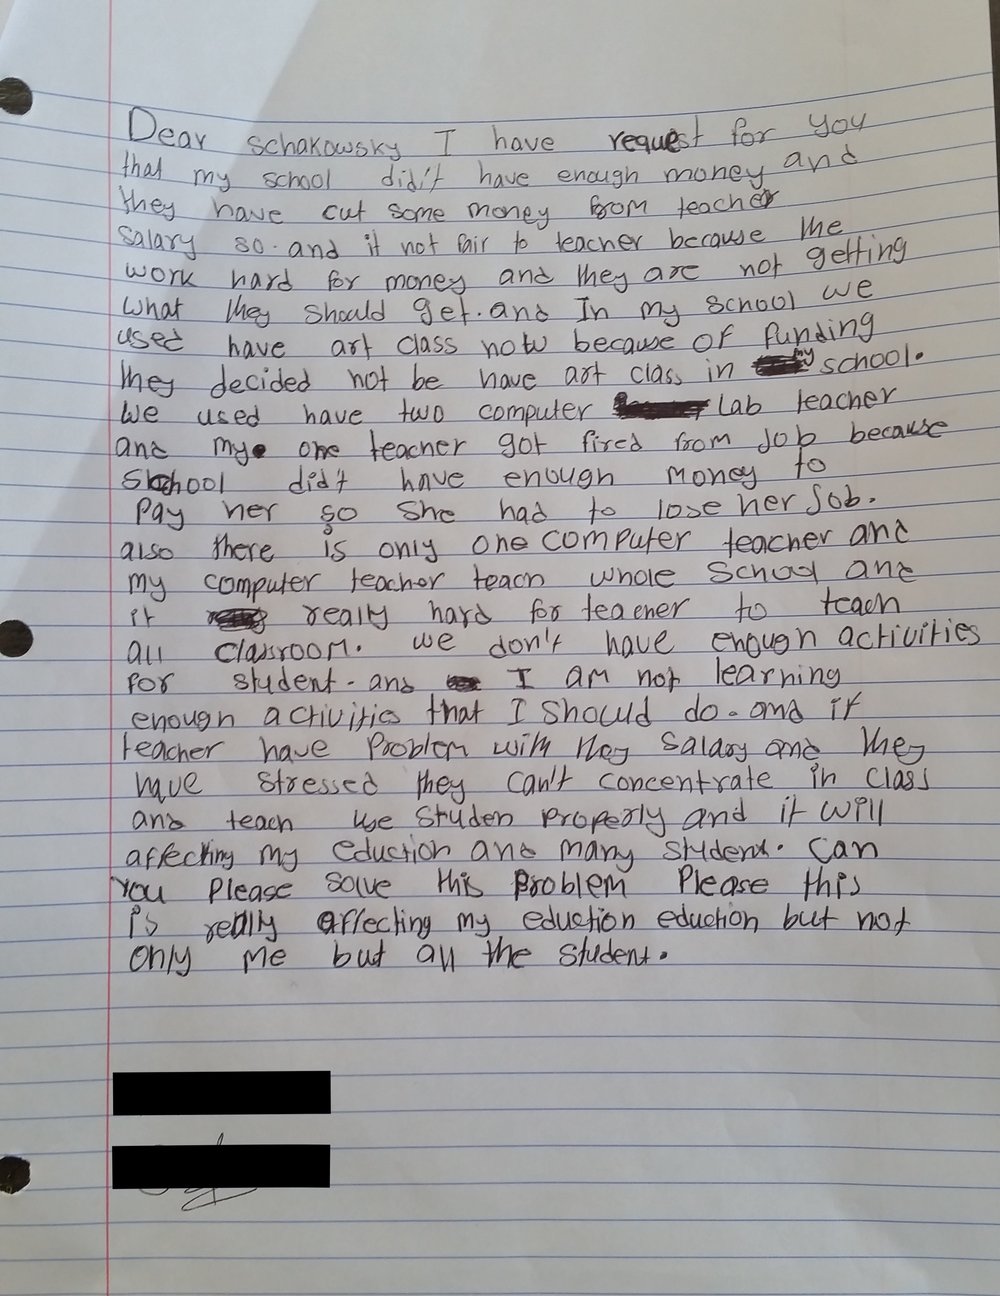 Dear Schakowsky I have request for you
that my school did't have enough money and
they have cut some money from teacher
salary so. and it not fair to teacher because the
work hard for money and they are not getting
what they should get. and In my school we
used have art class now because of funding
they decided not be have art class in my school.
We used have two computer lab teacher
and my one teacher got fired from Job because
School did't have enough money to
Pay her so she had to lose her Job.
also there is only one computer teacher and
my computer teacher teach whole School and
it really hard for teacher to teach
all classroom. we don't have enough activities
for student. and I am not learning
enough activities that I should do. and if
teacher have Problem with they salary and they
have stressed they can't concentrate in class
and teach us studen properly and it will
affecting my eduction and many student. Can
You Please solve this Problem Please this
is really affecting my eduction eduction but not
only me but all the student.